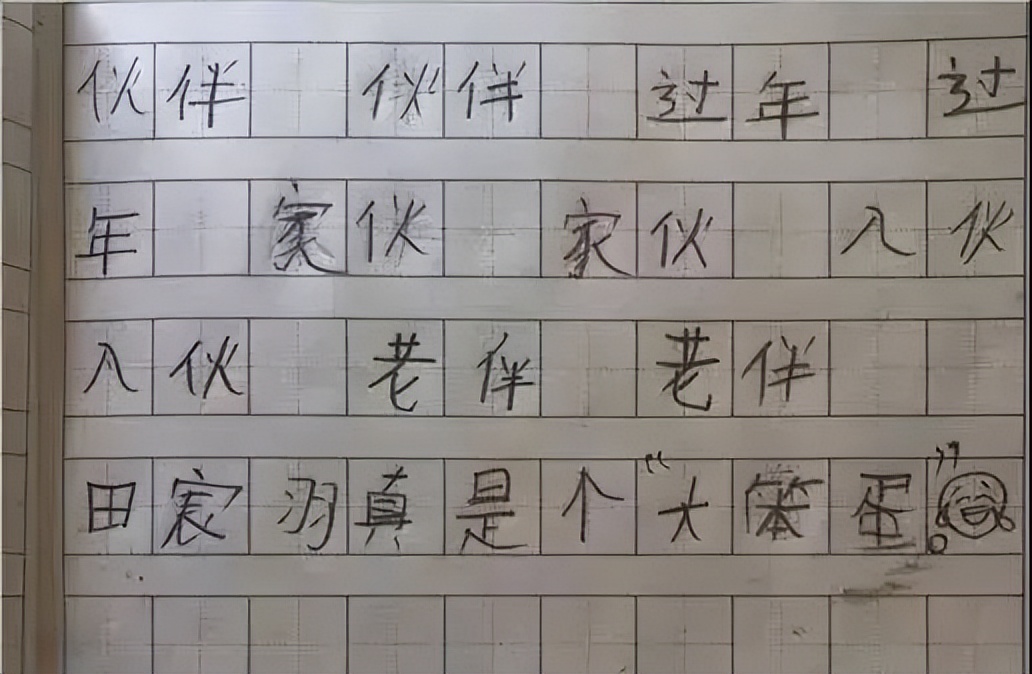 伙伴 伙伴 过年 过
年 家伙 家伙 入伙
入伙 老伴 老伴
田宸羽真是个“大笨蛋”。